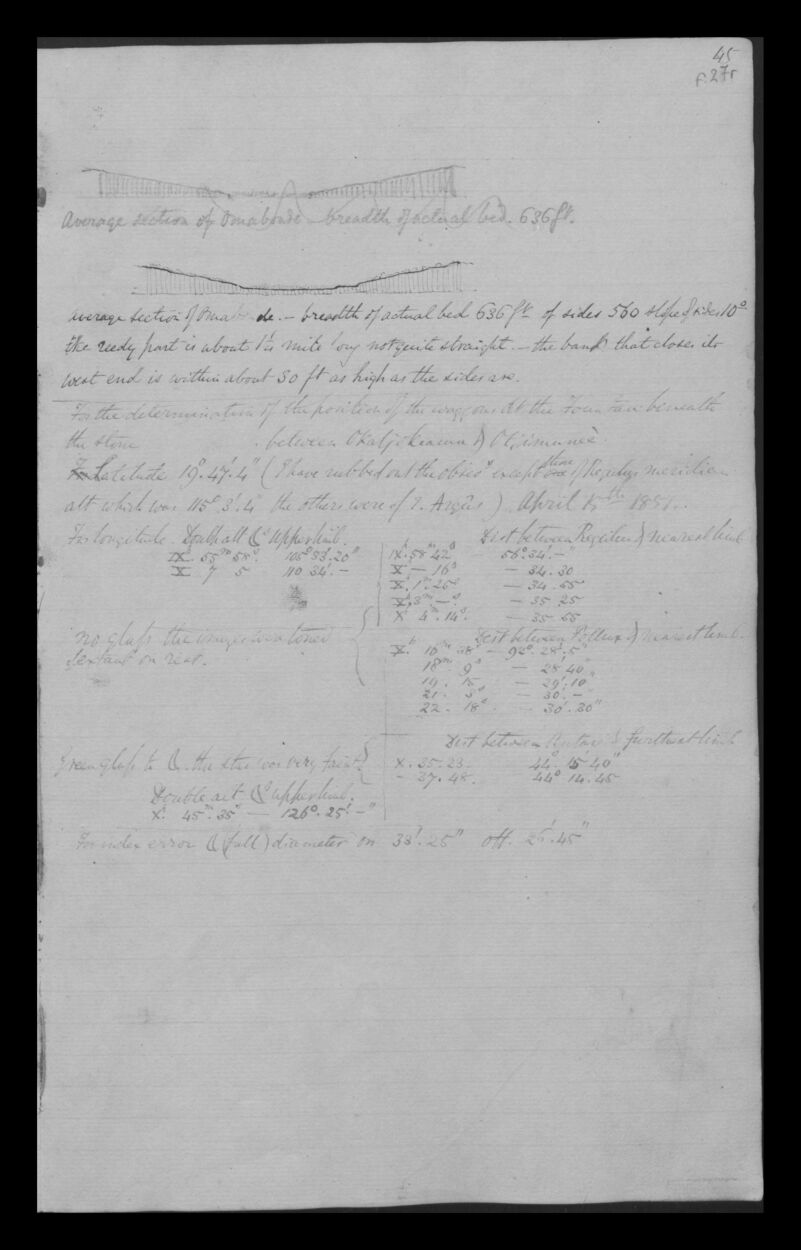 45
f.27r
Average section of Omabonde - breadth of actual bed. 636 ft.
average section of Omab de. - breadth of actual bed 636 ft of sides 560 slope of sides 10°
the reedy part is about 1¼ mile long not quite straight. - the bank that closes its
west end is within about 30 ft as high as the sides are.
For the determination of the position of the waggons at the Fountain beneath
the stone between Okatjokeama & Otjimunéë
Latitude 19°.47'.4" (I have rubbed out the obsns except those of Regulus meridian
alt which was 115° 3'.4" the others were of η. Argûs) April 15th 1851.
For longitude. Double alt upper limb. Dist between Regulus & nearest limb
IX.h 55m 58s. 108°53'.20" IX.h 58m 42s - 56°.34'.-"
X 7 5 110 34'. - X - 16s - 34.30
X.h 1m.25s - 34.55
X.h 3m -s. - 35.25
X 4m.14s. - 35.55
no glass the image was toned
Sextant on rest.
Dist between Pollux & nearest limb.
X.h 16m 28s - 92°. 28'.5"
18m 9s - 28 40"
19. 15 - 29'.10"
21. 3s - 30'. -"
22. 18s. - 30'.30"
Dist between & furthest limb
green glass to the star was very faint. X. 35.23. 44° 15 40"
- 37.48. 44° 14.45
Double alt upper limb.
X.h 45m.35s - 126°.25'.-"
For index error (full) diameter on 33'.25" off. 29'.45"